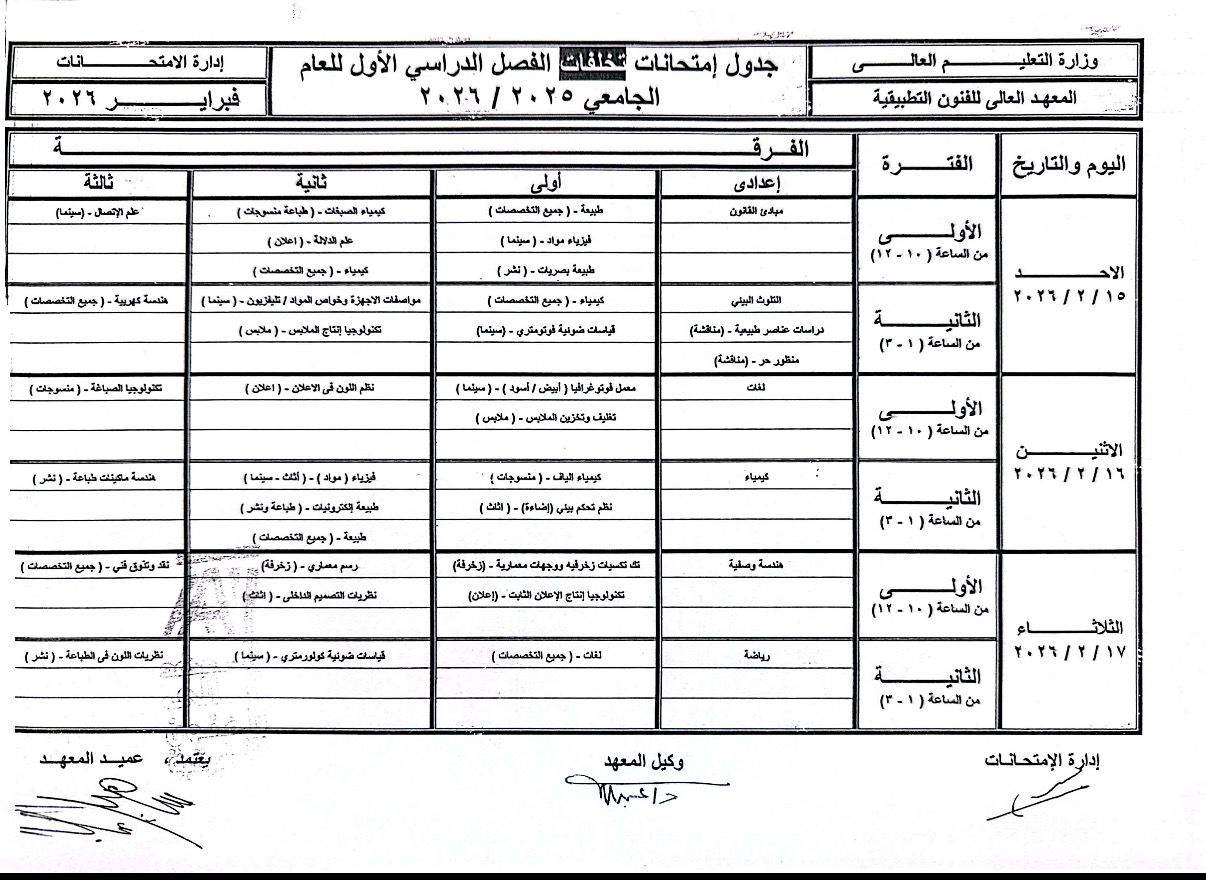 وزارة التعليم العالى
المعهد العالى للفنون التطبيقية
جدول إمتحانات الفصل الدراسي الأول للعام
الجامعي ٢٠٢٥ / ٢٠٢٦
إدارة الامتحانات
فبراير ٢٠٢٦
اليوم والتاريخ
الفترة
الفرقة
إعدادى
أولى
ثانية
ثالثة
الاحد
٢٠٢٦ / ٢ / ١٥
الأولى
من الساعة ( ١٠ - ١٢)
مبادئ القانون
طبيعة - ( جميع التخصصات )
كيمياء الصبغات - ( طباعة منسوجات )
علم الإتصال - (سينما)
فيزياء مواد - ( سينما )
علم الدلالة - ( اعلان )
طبيعة بصريات - ( نشر )
كيمياء - ( جميع التخصصات )
الثانية
من الساعة ( ١ - ٣)
التلوث البيئي
كيمياء - ( جميع التخصصات )
مواصفات الاجهزة وخواص المواد / تليفزيون - ( سينما )
هندسة كهربية - ( جميع التخصصات )
دراسات عناصر طبيعية - (مناقشة)
قياسات ضوئية فوتومتري - (سينما)
تكنولوجيا إنتاج الملابس - ( ملابس )
منظور حر - (مناقشة)
الاثنين
٢٠٢٦ / ٢ / ١٦
الأولى
من الساعة ( ١٠ - ١٢)
لغات
معمل فوتوغرافيا ( أبيض / أسود ) - ( سينما )
نظم اللون فى الاعلان - ( اعلان )
تكنولوجيا الصباغة - ( منسوجات )
تغليف وتخزين الملابس - ( ملابس )
الثانية
من الساعة ( ١ - ٣)
كيمياء
كيمياء الياف - ( منسوجات )
فيزياء ( مواد ) - ( أثاث - سينما )
هندسة ماكينات طباعة - ( نشر )
نظم تحكم بيئي (إضاءة) - ( اثاث )
طبيعة إلكترونيات - ( طباعة ونشر )
طبيعة - ( جميع التخصصات )
الثلاثاء
٢٠٢٦ / ٢ / ١٧
الأولى
من الساعة ( ١٠ - ١٢)
هندسة وصفية
تك تكسيات زخرفيه ووجهات معمارية - (زخرفة)
رسم معماري - ( زخرفة)
نقد وتذوق فني - ( جميع التخصصات )
تكنولوجيا إنتاج الإعلان الثابت - (إعلان)
نظريات التصميم الداخلى - ( اثاث )
الثانية
من الساعة ( ١ - ٣)
رياضة
لغات - ( جميع التخصصات )
قياسات ضوئية كولورمتري - ( سينما )
نظريات اللون فى الطباعة - ( نشر )
إدارة الإمتحانات
وكيل المعهد
يعتمد ، عميد المعهد